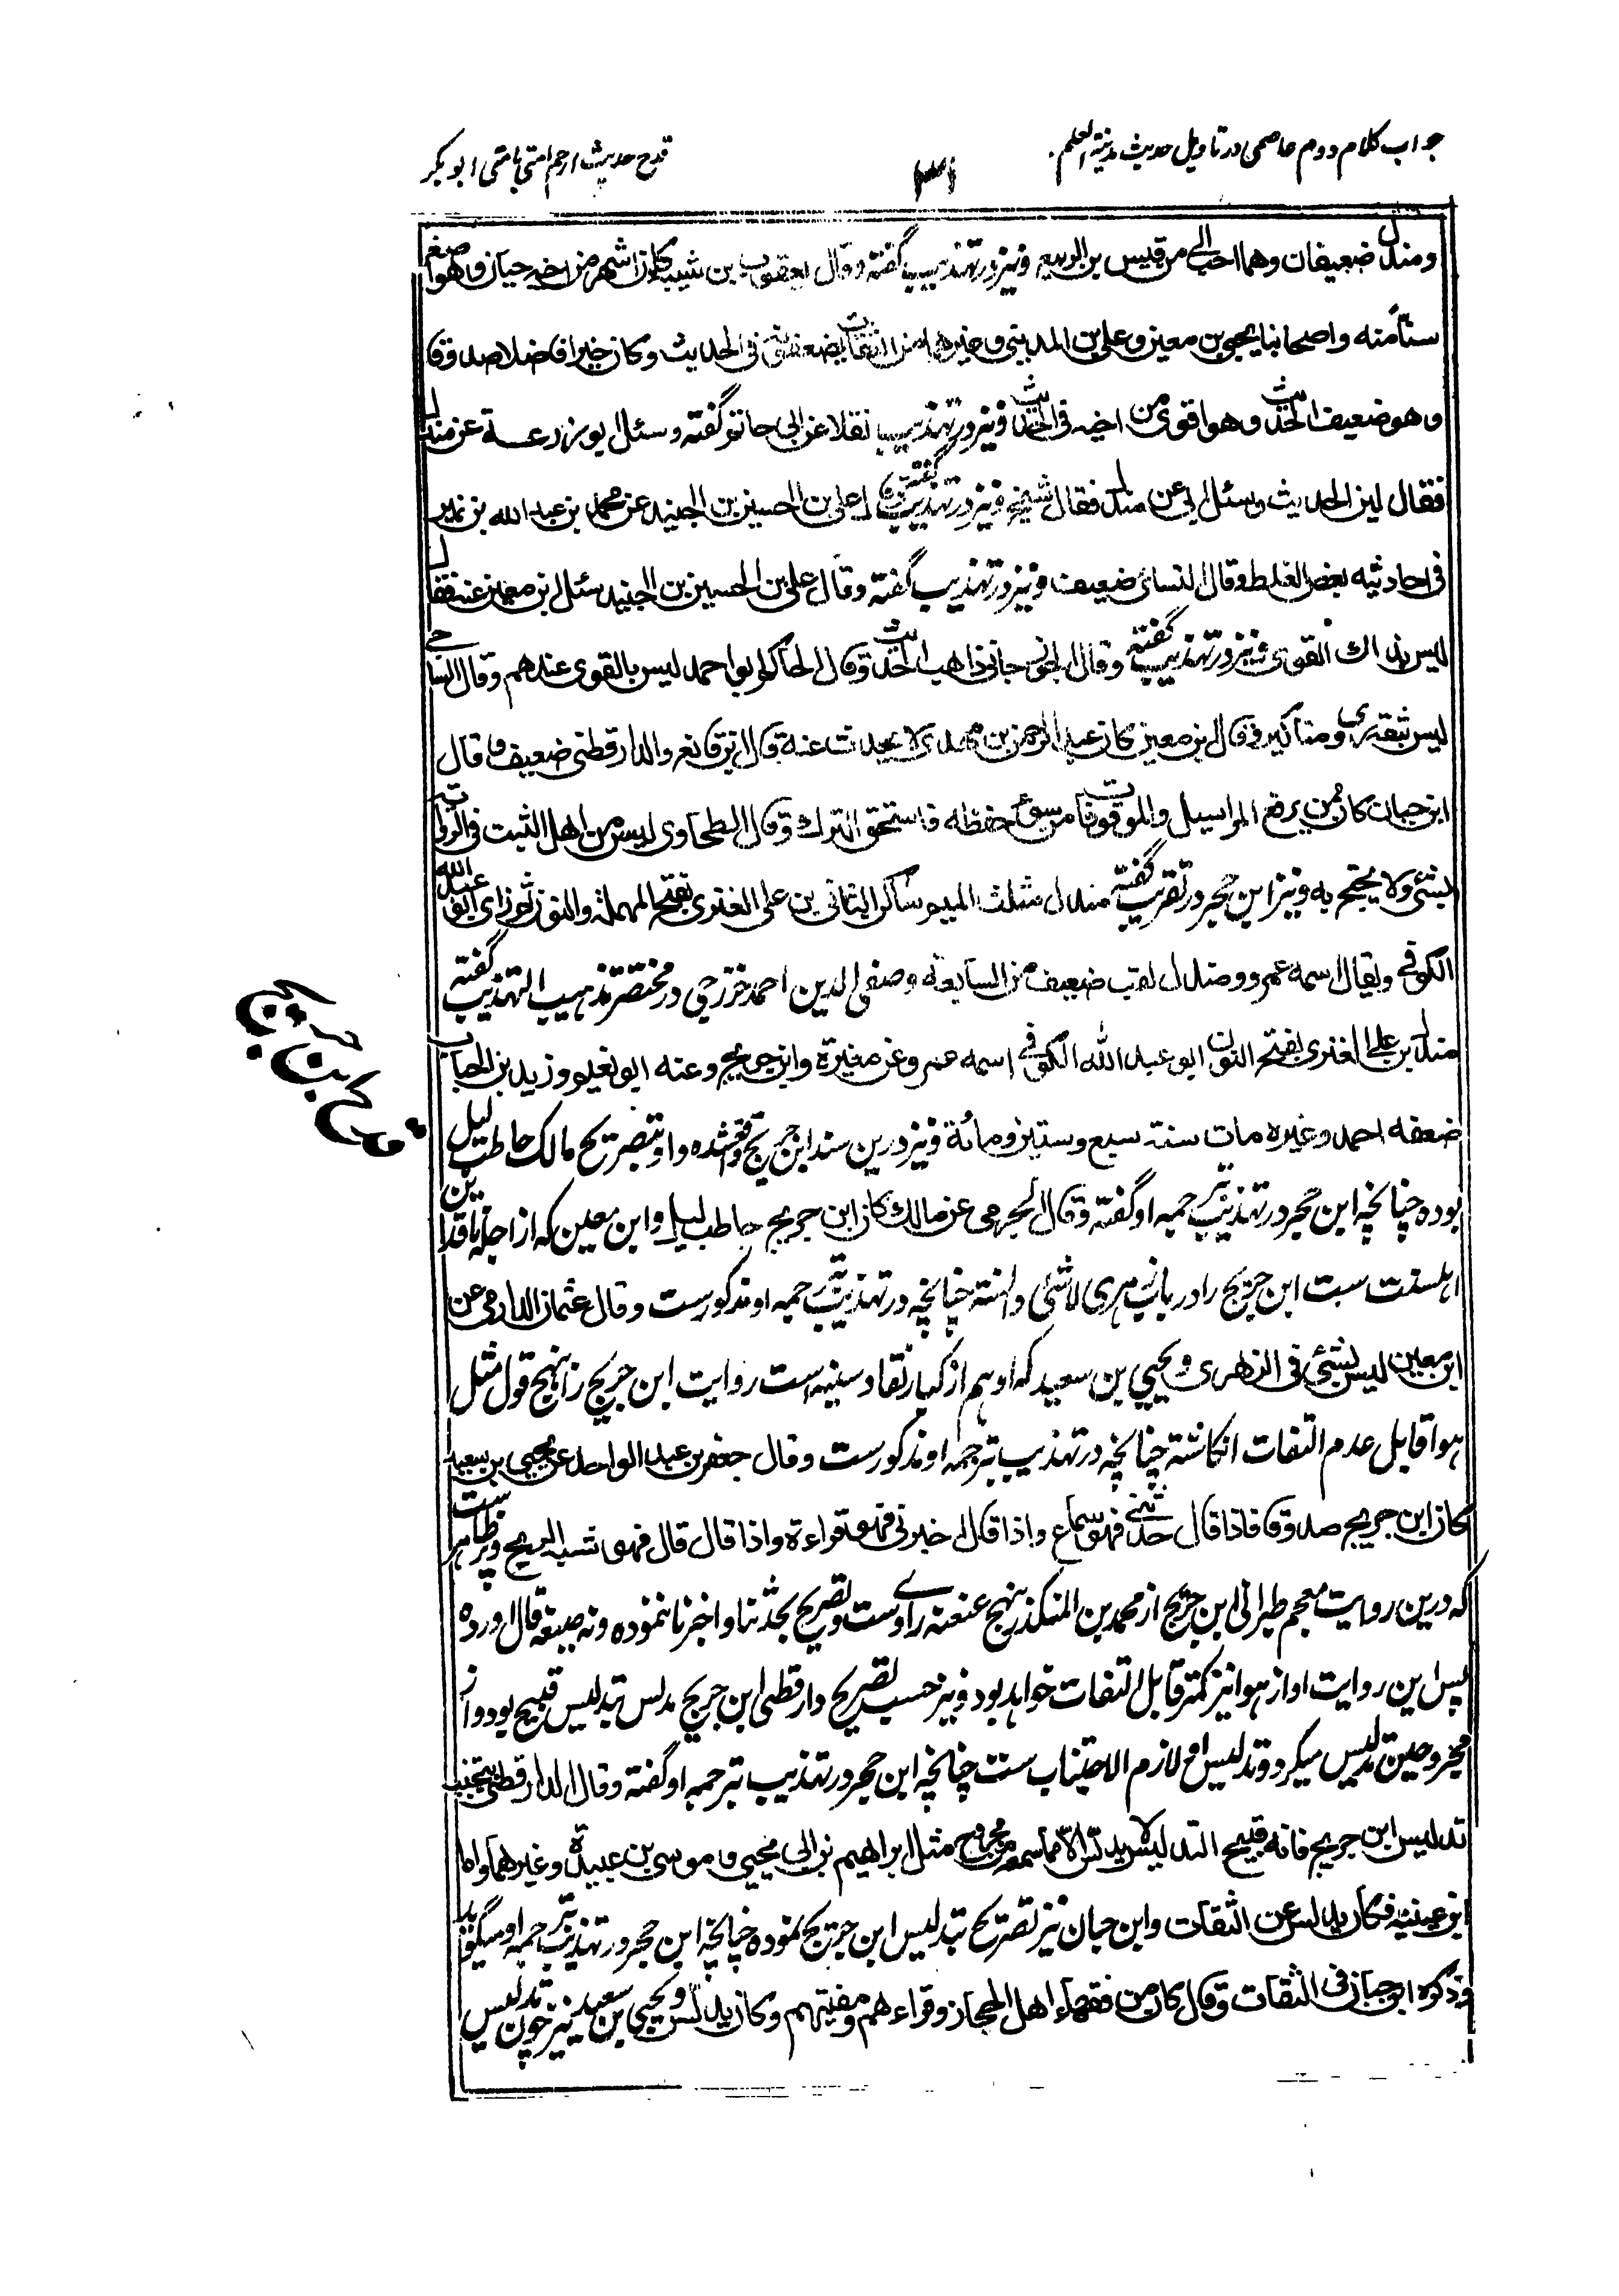 جواب کلام دوم عاصمی در تاویل حدیث مدینة العلم
قدح حدیث ارحم امتی بامتی ابوبکر
ومندل ضعیفان وهما احب الی من قیس بن الربیع ونیز در تهذیب گفته وقال یعقوب بن شیبة کان اشهر من اخیه حبان وهو اصغر
سنا منه واصحابنا یحیی بن معین وعلی بن المدینی وغیرهما من یضعفونه فی الحدیث وکان خیرا فاضلا صدوقا
وهو ضعیف الحدیث وهو اقوی من اخیه فی الحدیث ونیز در تهذیب نقلا عن ابی حاتم گفته وسئل ابو زرعة عن مندل
فقال لین الحدیث وسئل ابی عن مندل فقال شیخ ونیز در تهذیب گفته علی بن الحسین بن الجنید عن محمد بن عبد الله بن نمیر
فی احادیثه بعض الغلط وقال النسائی ضعیف ونیز در تهذیب گفته وقال علی بن الحسین بن الجنید سئل ابن معین عنه فقال
لیس بذاك القوی ونیز در تهذیب گفته وقال الجوزجانی ذاهب الحدیث وقال الحاکم ابو احمد لیس بالقوی عندهم وقال الساجی
لیس بثقة روی مناکیر وقال ابن معین کان عبد الرحمن بن مهدی لا یحدث عنه وقال ابن قانع والدارقطنی ضعیف وقال
ابن حبان کان ممن یرفع المراسیل والموقوفات من سوء حفظه فاستحق الترك وقال الطحاوی لیس من اهل الثبت فی الروایة
بشئ ولا یحتج به ونیز ابن حجر در تقریب گفته مندل مثلث المیم ساکن الثانی بن علی العنزی بفتح المهملة والنون ثم زای ابو عبد الله
الکوفی ویقال اسمه عمرو ومندل لقب ضعیف من السابعة وصفی الدین احمد خزرجی در مختصر تذهیب التهذیب گفته
مندل بن علی العنزی بفتح النون ابو عبد الله الکوفی اسمه عمرو عن مغیرة وابن جریج وعنه ابو نعیم وزید بن الحباب
ضعفه احمد وغیره مات سنة سبع وستین ومائة ونیز درین سند ابن جریج واقع شده واو بتصریح مالک حاطب لیل
بوده چنانچه ابن حجر در تهذیب بترجمه او گفته وقال عن مالك کان ابن جریج حاطب لیل وابن معین که از اجله ناقدین
اهلسنت ست ابن جریج را در باب زهری لاشئی دانسته چنانچه در تهذیب بترجمه او مذکورست وقال عثمان الدارمی عن
ابن معین لیس بشئ فی الزهری ویحیی بن سعید که او هم از کبار نقاد سنیه است روایت ابن جریج را بنهج قول مثل
هوا قابل عدم التفات انگاشته چنانچه در تهذیب بترجمه او مذکورست وقال جعفر بن عبد الواحد عن یحیی بن سعید
کان ابن جریج صدوقا فاذا قال حدثنی فهو سماع واذا قال اخبرنی فهو قراءة واذا قال قال فهو شبه الریح وپر ظاهرست
که درین روایت معجم طبرانی ابن جریج از محمد بن المنکدر بنهج عنعنه راوی ست وتصریح بحدثنا واخبرنا ننموده ونه بصیغه قال آورده
پس این روایت او از هوا نیز کمتر قابل التفات خواهد بود ونیز حسب تصریح دارقطنی ابن جریج مدلس بتدلیس قبیح بود واز
مجروحین تدلیس میکرد وتدلیس او لازم الاجتناب ست چنانچه ابن حجر در تهذیب بترجمه او گفته وقال الدارقطنی تجنب
تدلیس ابن جریج فانه قبیح التدلیس لا یدلس الا فیما سمعه من مجروح مثل ابراهیم بن ابی یحیی وموسی بن عبیدة وغیرهما واما
ابن عیینة فکان یدلس عن الثقات وابن حبان نیز تصریح بتدلیس ابن جریج نموده چنانچه ابن حجر در تهذیب بترجمه او میگوید
وذکره ابن حبان فی الثقات وقال کان من فقهاء اهل الحجاز وقراءهم ومفتیهم وکان یدلس ویحیی بن سعید نیز چون تدلیس
قدح ابن جریج